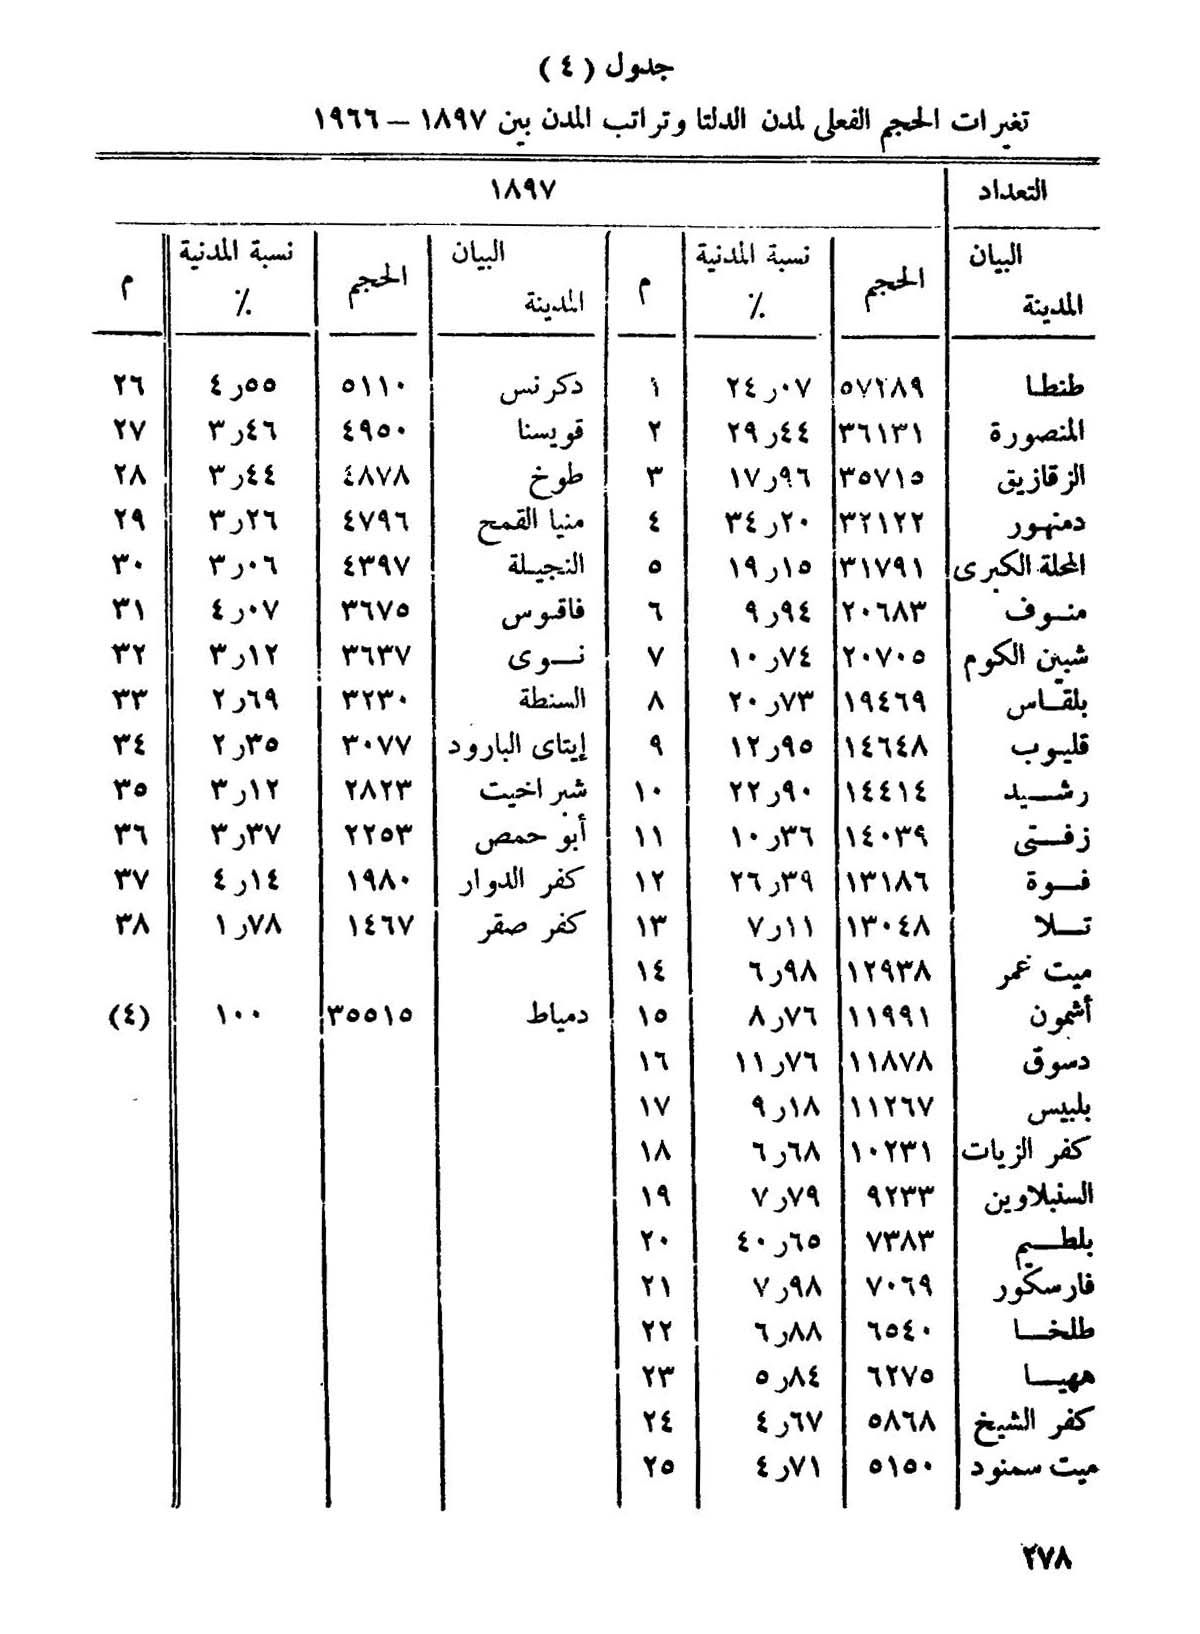 جدول ( ٤ )
تغيرات الحجم الفعلى لمدن الدلتا وتراتب المدن بين ١٨٩٧ – ١٩٦٦
التعداد ١٨٩٧
البيان المدينة الحجم نسبة المدنية ٪ م البيان المدينة الحجم نسبة المدنية ٪ م
طنطا ٥٧٢٨٩ ٠٧ر٢٤ ١ دكرنس ٥١١٠ ٥٥ر٤ ٢٦
المنصورة ٣٦١٣١ ٤٤ر٢٩ ٢ قويسنا ٤٩٥٠ ٤٦ر٣ ٢٧
الزقازيق ٣٥٧١٥ ٩٦ر١٧ ٣ طوخ ٤٨٧٨ ٤٤ر٣ ٢٨
دمنهور ٣٢١٢٢ ٢٠ر٣٤ ٤ منيا القمح ٤٧٩٦ ٢٦ر٣ ٢٩
المحلة الكبرى ٣١٧٩١ ١٥ر١٩ ٥ النجيلة ٤٣٩٧ ٠٦ر٣ ٣٠
منوف ٢٠٦٨٣ ٩٤ر٩ ٦ فاقوس ٣٦٧٥ ٠٧ر٤ ٣١
شبين الكوم ٢٠٧٠٥ ٧٤ر١٠ ٧ نوى ٣٦٣٧ ١٢ر٣ ٣٢
بلقاس ١٩٤٦٩ ٧٣ر٢٠ ٨ السنطة ٣٢٣٠ ٦٩ر٢ ٣٣
قليوب ١٤٦٤٨ ٩٥ر١٢ ٩ إيتاى البارود ٣٠٧٧ ٣٥ر٢ ٣٤
رشيد ١٤٤١٤ ٩٠ر٢٢ ١٠ شبراخيت ٢٨٢٣ ١٢ر٣ ٣٥
زفتى ١٤٠٣٩ ٣٦ر١٠ ١١ أبو حمص ٢٢٥٣ ٣٧ر٣ ٣٦
فوة ١٣١٨٦ ٣٩ر٢٦ ١٢ كفر الدوار ١٩٨٠ ١٤ر٤ ٣٧
تلا ١٣٠٤٨ ١١ر٧ ١٣ كفر صقر ١٤٦٧ ٧٨ر١ ٣٨
ميت غمر ١٢٩٣٨ ٩٨ر٦ ١٤
أشمون ١١٩٩١ ٧٦ر٨ ١٥ دمياط ٣٥٥١٥ ١٠٠ (٤)
دسوق ١١٨٧٨ ٧٦ر١١ ١٦
بلبيس ١١٢٦٧ ١٨ر٩ ١٧
كفر الزيات ١٠٢٣١ ٦٨ر٦ ١٨
السنبلاوين ٩٢٣٣ ٧٩ر٧ ١٩
بلطيم ٧٣٨٣ ٦٥ر٤٠ ٢٠
فارسكور ٧٠٦٩ ٩٨ر٧ ٢١
طلخا ٦٥٤٠ ٨٨ر٦ ٢٢
ههيا ٦٢٧٥ ٨٤ر٥ ٢٣
كفر الشيخ ٥٨٦٨ ٦٧ر٤ ٢٤
ميت سمنود ٥١٥٠ ٧١ر٤ ٢٥
٢٧٨